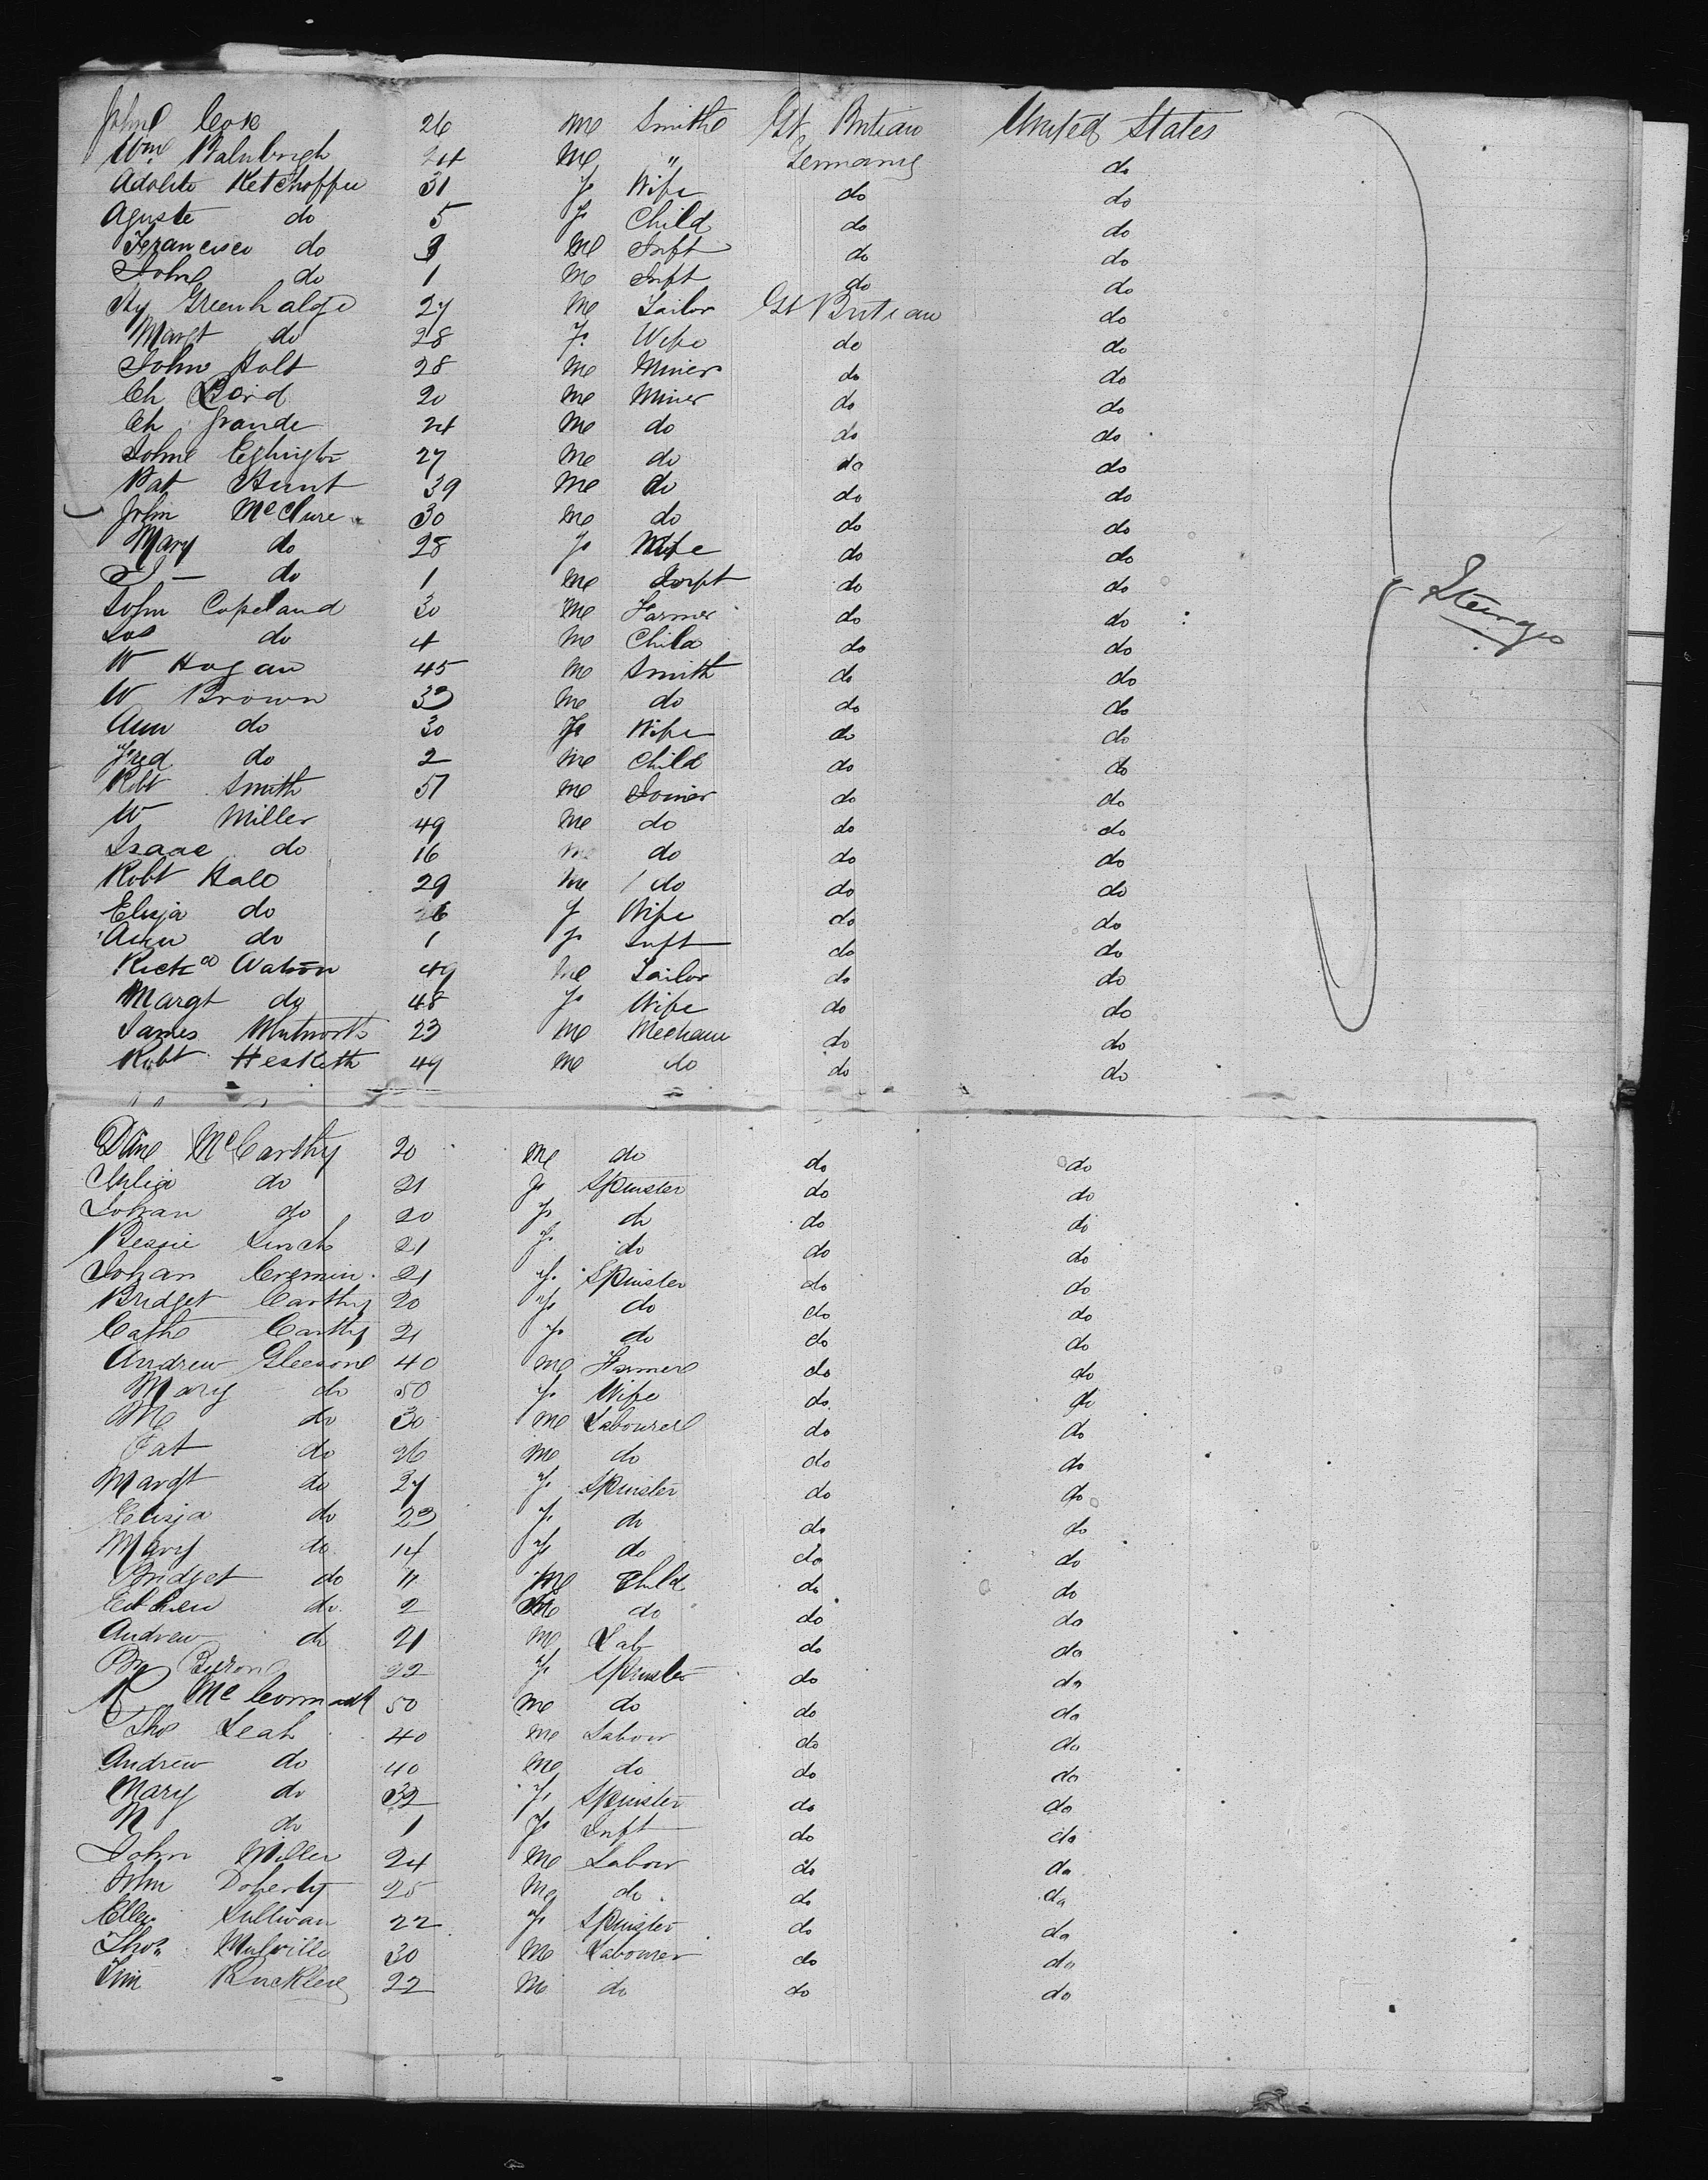 John Cox 26 Me Smith Gt Britian United States
Wm Balnbrigh 24 Me " Germany do
Adolite Ketchoffer 31 F Wife do do
Aguste do 5 F Child do do
Francisco do 3 Me Inft do do
John do 1 Me Inft do do
Hy Greenhalge 27 Me Tailor Gt Britian do
Margt do 28 F Wife do do
John Holt 28 Me Miner do do
Ch Baird 20 Me Miner do do
Ch Grande 24 Me do do do
John Eglington 27 Me do do do
Pat Hunt 39 Me do do do
John McClure 30 Me do do do
Mary do 28 F Wife do do
J - do 1 Me Inft do do
John Copeland 30 Me Farmer do do
Jas do 4 Me Child do do
W Hogan 45 Me Smith do do
W Brown 33 Me do do do
Ann do 30 F Wife do do
Fred do 2 Me Child do do
Robt Smith 51 Me Joiner do do
W Miller 49 Me do do do
Isaac do 16 Me do do do
Robt Hall 29 Me do do do
Elisja do 26 F Wife do do
Ann do 1 F Inft do do
Richd Watson 49 Me Tailor do do
Margt do 48 F Wife do do
James Whitworth 23 Me Mechanic do do
Robt Hesketh 49 Me do do do
Steerage
Dane McCarthy 20 Me do do do
Julia do 21 F Spinster do do
Johan do 20 F do do do
Bessie Linch 21 F do do do
Johan Cremin 21 F Spinster do do
Bridget Carthy 20 F do do do
Cath Carthy 21 F do do do
Andrew Gleeson 40 Me Farmer do do
Mary do 50 F Wife do do
M do 30 Me Labourer do do
Pat do 26 Me do do do
Margt do 27 F Spinster do do
Elisja do 23 F do do do
Mary do 14 F do do do
Bridget do 11 Me Child do do
do 2 Me do do do
Andrew do 21 Me Lab do do
22 F Spinster do do
McCormack 50 Me do do do
Tho Leah 40 Me Labour do do
Andrew do 40 Me do do do
Mary do 32 F Spinster do do
M do 1 F Inft do do
John Miller 24 Me Labour do do
John Doherty 25 Me do do do
Ellen Sullivan 22 F Spinster do do
Thos Mulville 30 Me Labourer do do
Tim Buckley 22 Me do do do